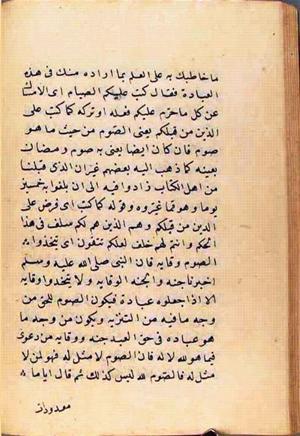 ما خاطبك به على العلم بما اراده منك فى هذه
العبادة فقال كتب عليكم الصيام اى الامساك
عن كل ما حرم عليكم فعله او تركه كما كتب على
الذين من قبلكم يعنى الصوم من حيث ما هو
صوم فان كان ايضا يعنى به صوم رمضان
بعينه كما ذهب اليه بعضهم غير ان الذى قبلنا
من اهل الكتاب زادوا فيه الى ان بلغوا به خمسين
يوما وهو مما غيروه وقوله كما كتب اى فرض على
الذين من قبلكم وهم الذين هم لكم سلف فى هذا
الحكم وانتم لهم خلف لعلكم تتقون اى تتخذوا
الصوم وقاية فان النبى صلى الله عليه وسلم
اخبرنا انه جنة والجنة الوقاية ولا يتخذوا وقاية
الا اذا جعلوه عبادة فيكون الصوم للحق من
وجه ما فيه من التنزيه ويكون من وجه ما
هو عبادة فى حق العبد جنة ووقاية من دعوى
فيما هو لله لا له فان الصوم لا مثل له فهو لمن لا
مثل له فالصوم لله ليس لك ثم قال اياما
معدودات